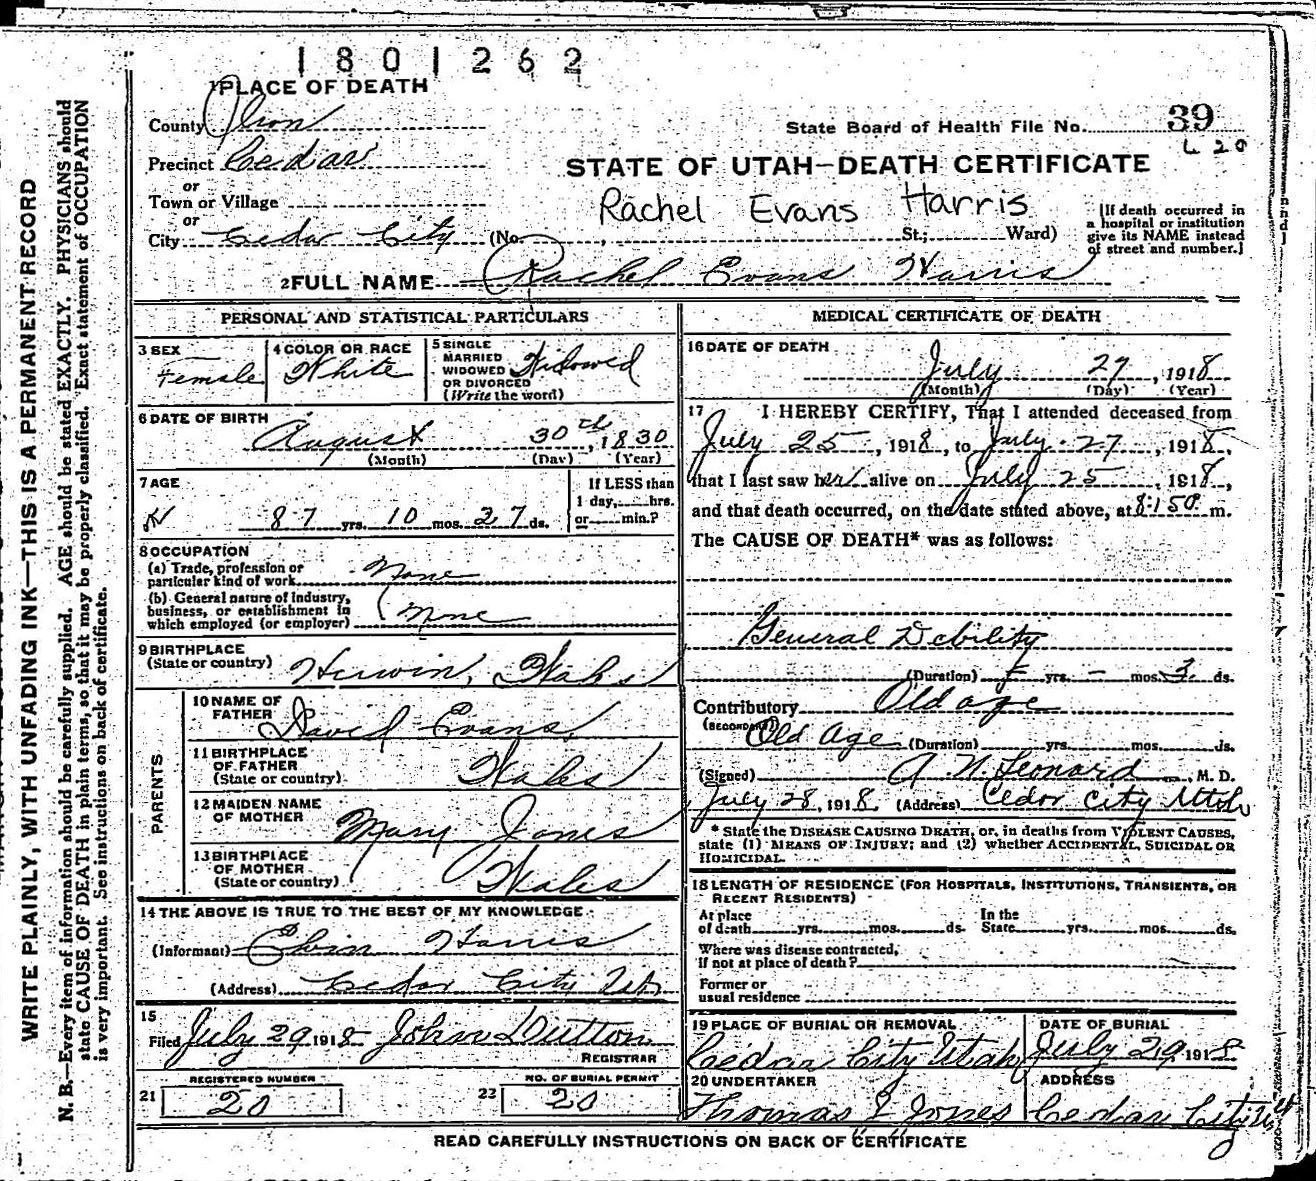 1801262
1 PLACE OF DEATH
County Iron
State Board of Health File No. 39
Precinct Cedar
L 20
or
STATE OF UTAH—DEATH CERTIFICATE
Town or Village
or
Rachel Evans Harris
City Cedar City (No. , St.; Ward)
[If death occurred in
a hospital or institution
give its NAME instead
of street and number.]
2 FULL NAME Rachel Evans Harris
PERSONAL AND STATISTICAL PARTICULARS
3 SEX
Female
4 COLOR OR RACE
White
5 SINGLE
MARRIED
WIDOWED
OR DIVORCED
(Write the word)
Widowed
6 DATE OF BIRTH
August 30th, 1830
(Month) (Day) (Year)
7 AGE
87 yrs. 10 mos. 27 ds.
If LESS than
1 day, hrs.
or min.?
8 OCCUPATION
(a) Trade, profession or
particular kind of work None
(b) General nature of industry,
business, or establishment in
which employed (or employer) None
9 BIRTHPLACE
(State or country) Wales
PARENTS
10 NAME OF
FATHER David Evans
11 BIRTHPLACE
OF FATHER
(State or country) Wales
12 MAIDEN NAME
OF MOTHER Mary Jones
13 BIRTHPLACE
OF MOTHER
(State or country) Wales
14 THE ABOVE IS TRUE TO THE BEST OF MY KNOWLEDGE
(Informant) Harris
(Address) Cedar City Ut.
15
Filed July 29 1918 John S Dutton
REGISTRAR
REGISTERED NUMBER
21 20
NO. OF BURIAL PERMIT
22 20
MEDICAL CERTIFICATE OF DEATH
16 DATE OF DEATH
July 27, 1918
(Month) (Day) (Year)
17 I HEREBY CERTIFY, That I attended deceased from
July 25, 1918, to July 27, 1918,
that I last saw her alive on July 25 1918,
and that death occurred, on the date stated above, at 8:150 m.
The CAUSE OF DEATH* was as follows:
General Debility
(Duration) - yrs. - mos. 3 ds.
Contributory Old age
(SECONDARY)
Old Age (Duration) yrs. mos. ds.
(Signed) A. N. Leonard, M. D.
July 28, 1918 (Address) Cedar City Utah
* State the DISEASE CAUSING DEATH, or, in deaths from VIOLENT CAUSES,
state (1) MEANS OF INJURY; and (2) whether ACCIDENTAL, SUICIDAL OR
HOMICIDAL.
18 LENGTH OF RESIDENCE (FOR HOSPITALS, INSTITUTIONS, TRANSIENTS, OR
RECENT RESIDENTS)
At place
of death yrs. mos. ds.
In the
State yrs. mos. ds.
Where was disease contracted,
If not at place of death?
Former or
usual residence
19 PLACE OF BURIAL OR REMOVAL
Cedar City Utah
DATE OF BURIAL
July 29 1918
20 UNDERTAKER
Thomas J Jones
ADDRESS
Cedar City Ut
READ CAREFULLY INSTRUCTIONS ON BACK OF CERTIFICATE
WRITE PLAINLY, WITH UNFADING INK—THIS IS A PERMANENT RECORD
N. B.—Every item of information should be carefully supplied. AGE should be stated EXACTLY. PHYSICIANS should
state CAUSE OF DEATH in plain terms, so that it may be properly classified. Exact statement of OCCUPATION
is very important. See instructions on back of certificate.